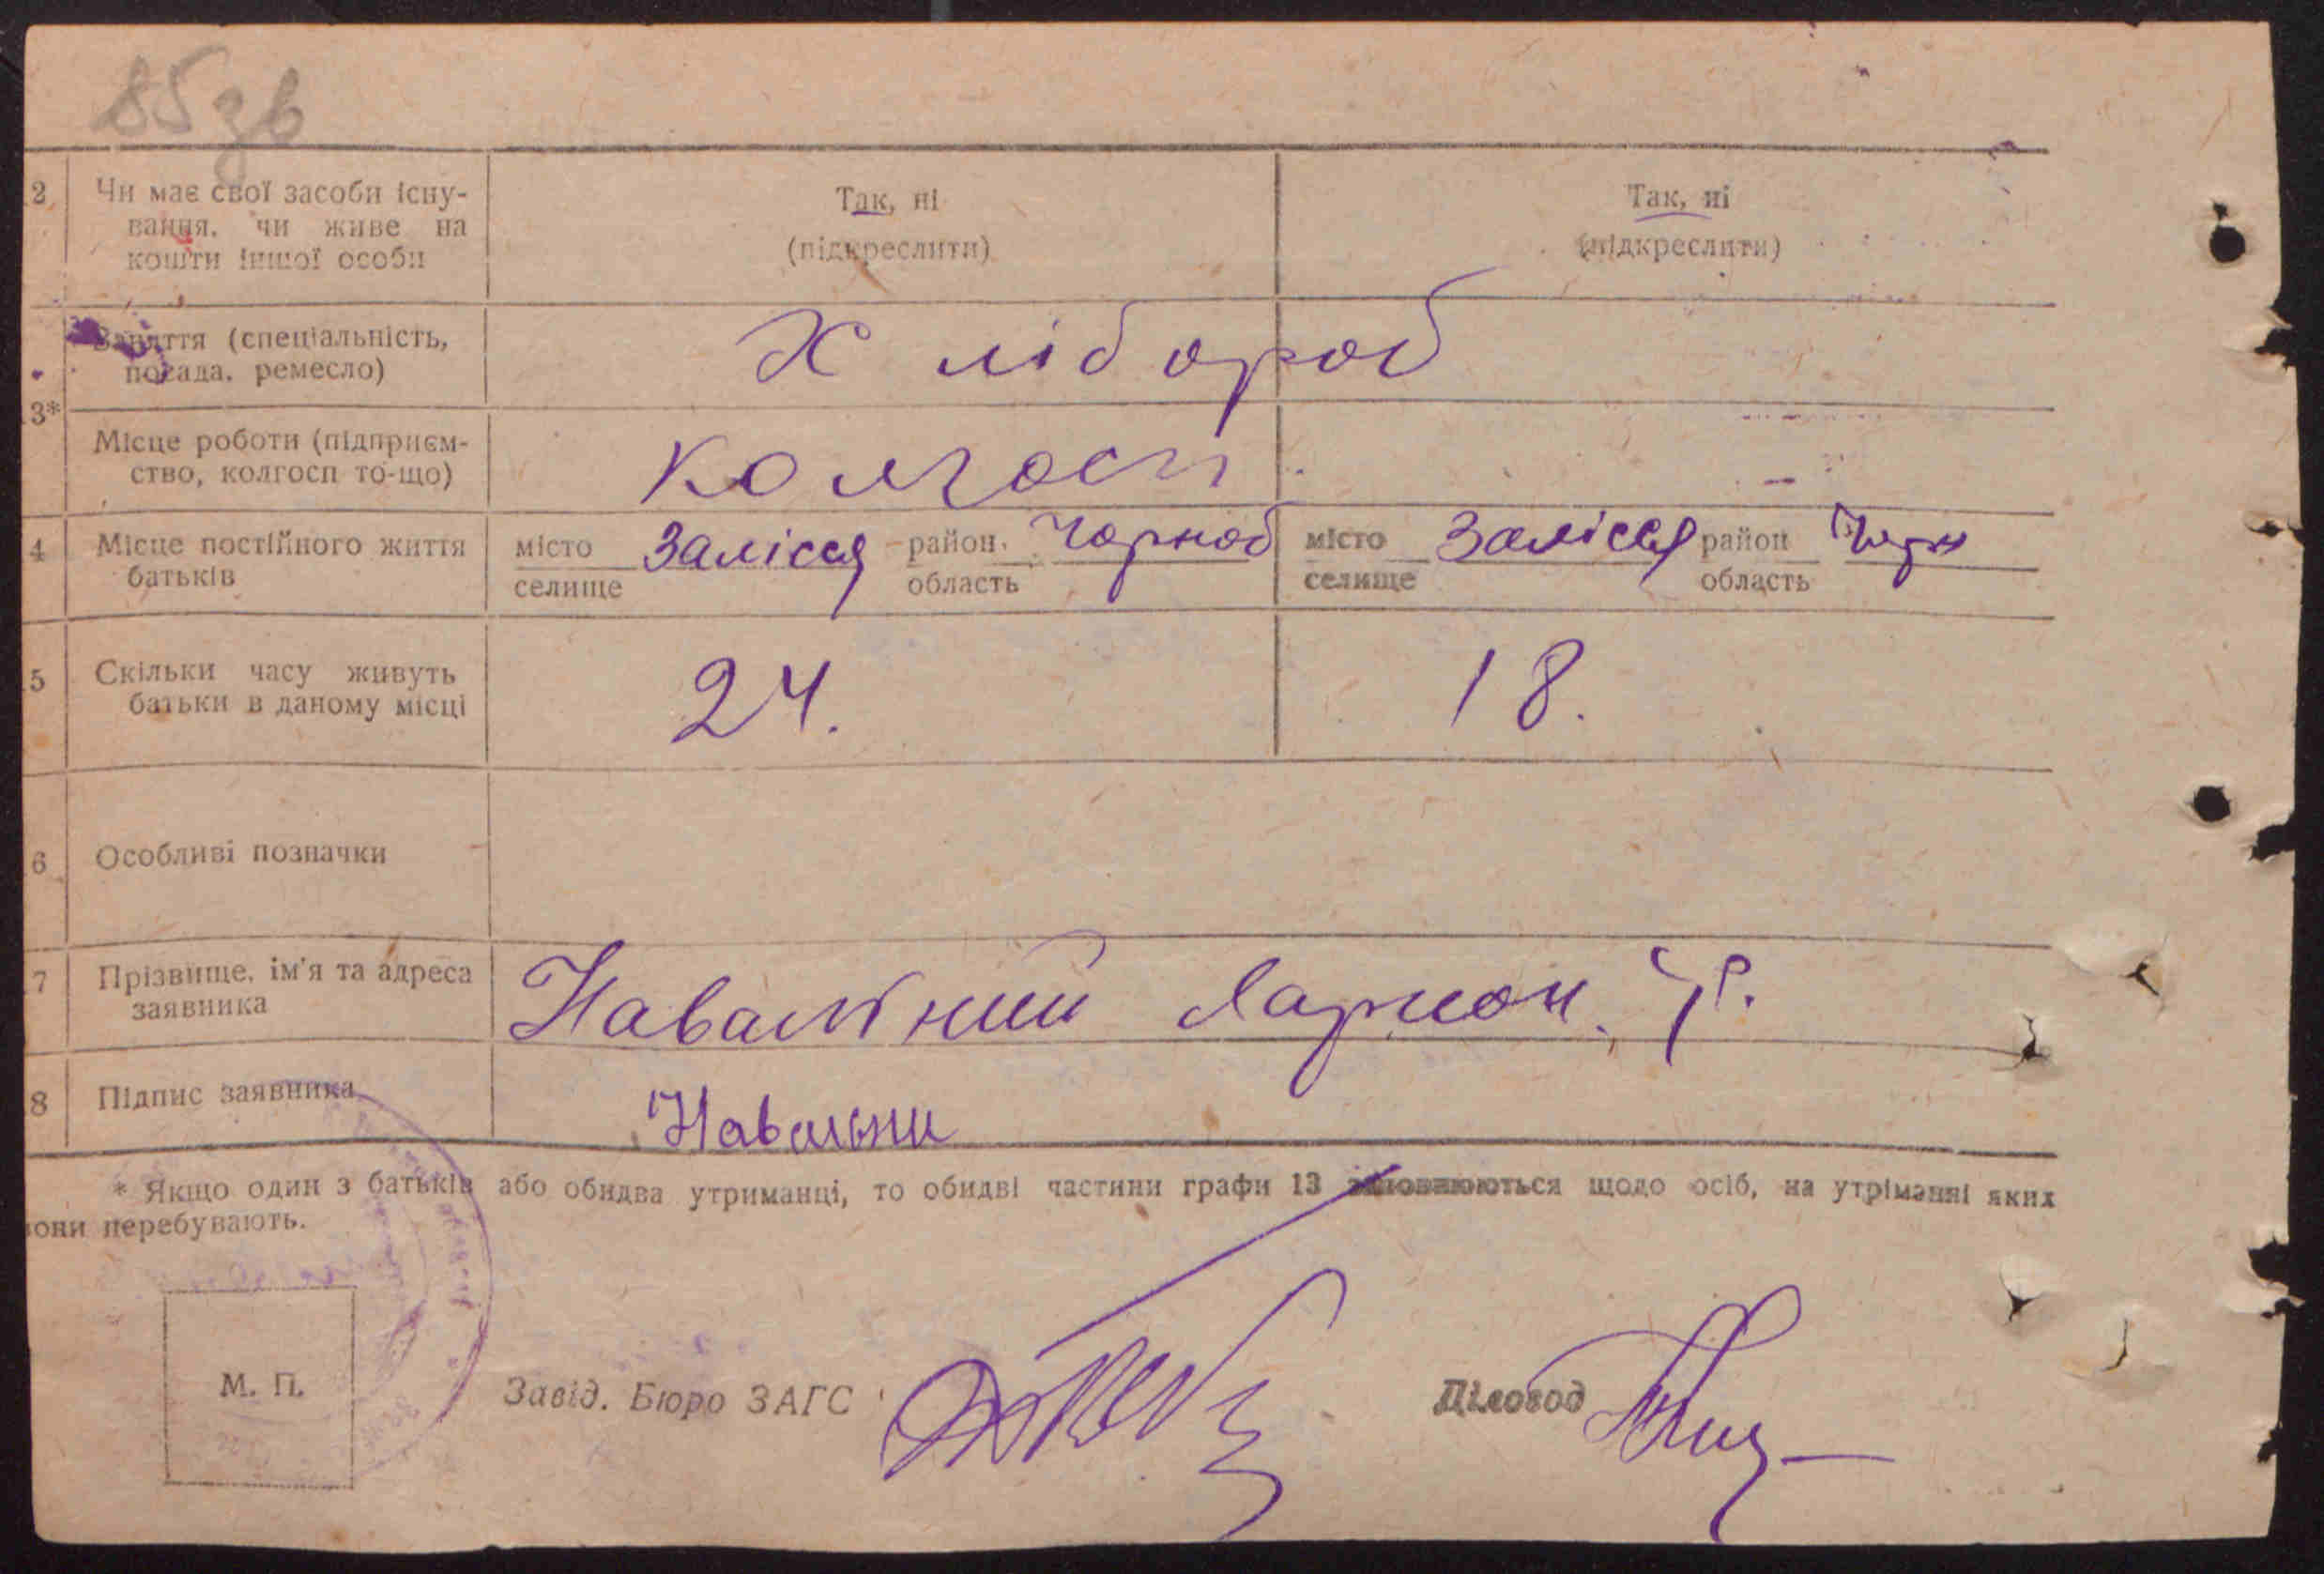 85 зв
2 Чи має свої засоби існу- Так, ні Так, ні
вання, чи живе на (підкреслити) (підкреслити)
кошти іншої особи
Заняття (спеціальність, Хлібороб
посада, ремесло)
3*
Місце роботи (підприєм- Колгосп –
ство, колгосп то-що)
4 Місце постійного життя місто Залісся район Чорноб місто Залісся район Чорн
батьків селище область селище область
5 Скільки часу живуть 24. 18.
батьки в даному місці
6 Особливі позначки
7 Прізвище, ім'я та адреса Навальний Ларион.
заявника
8 Підпис заявника Навальни
* Якщо один з батьків або обидва утриманці, то обидві частини графи 13 заповнюються щодо осіб, на утріманні яких
вони перебувають.
М. П.
Завід. Бюро ЗАГС Діловод